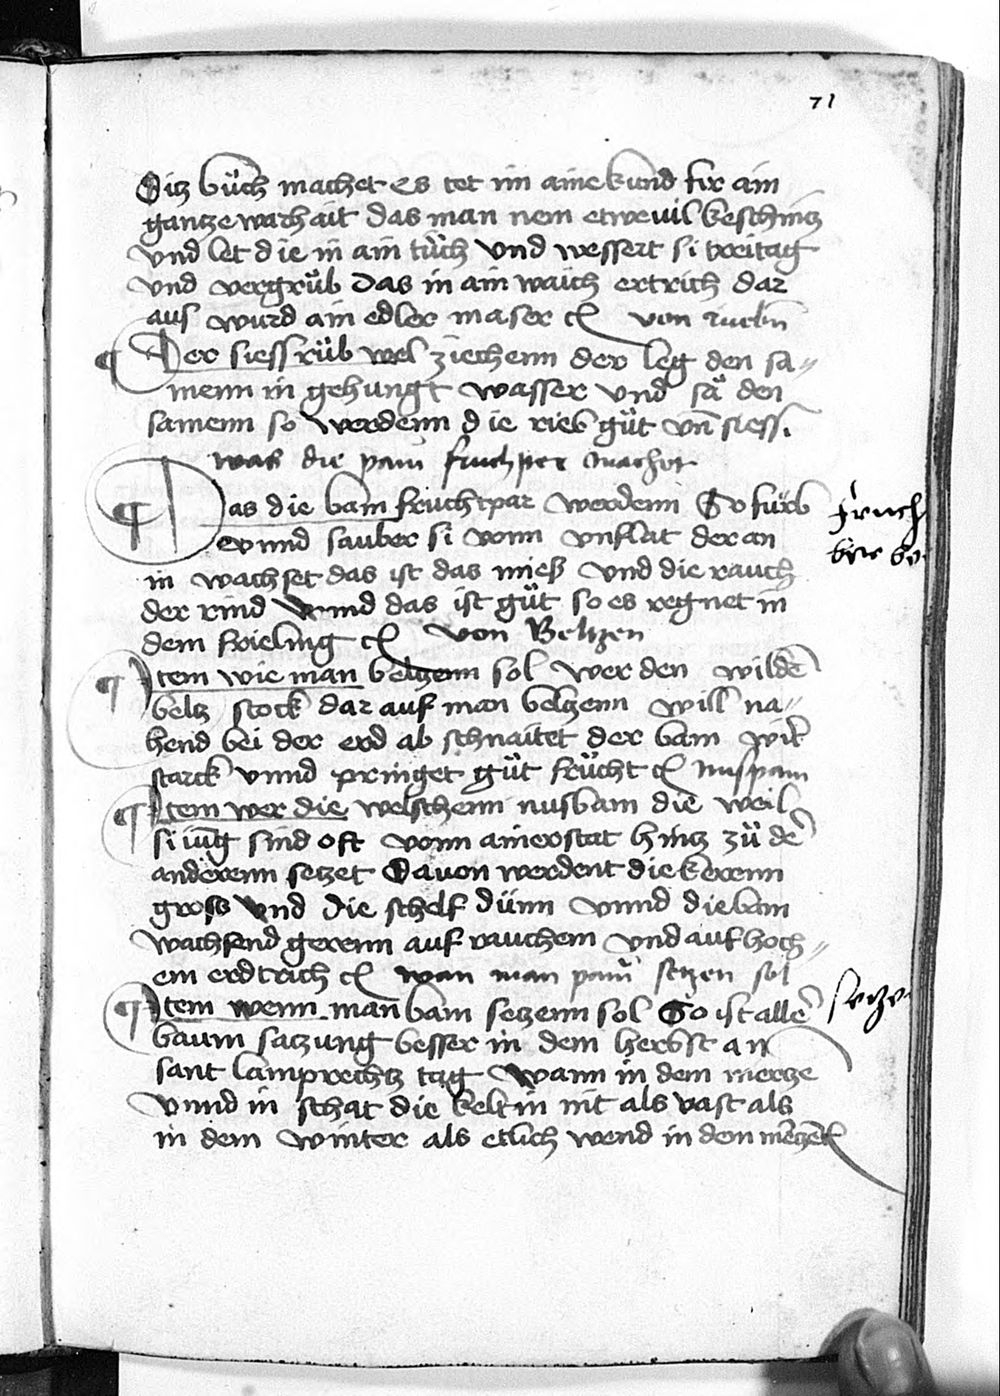 71
Ditz bůch machet es tet im aine kund fir ain
gantze warhait das man nem etwe uil
und let die in ain tůch und wessert si dreitag
und vergrůb das in ain waich ertrich dar
aus wurd ain edler maser von
¶ Der siess rüb wel ziechenn der leg den sa〃
menn in gehungt wasser und sä den
samenn so werdenn die rieb gůt vn̄ siess.
was die pam fruchper machet
¶ Das die bam fruchtpar werdenn So fürb
er unnd sauber si vonn vnflat der an
in wachset das ist das mieß und die rauch
der rind vnnd das ist gůt so es regnet in
dem frieling von Beltzen
¶ Item wie man beltzenn sol wer den wildē
beltz stock dar auf man beltzenn will na〃
hend bei der erd ab schnaitet der bam wirt
starck vnnd pringet gůt frücht nuspam
¶ Item wer die welschenn nusbam die weil
si iūg sind oft vonn ainer stat hintz zů der
anderenn setzet Dauon werdent die kerenn
gross vnd die schelf dünn vnnd die bam
wachsend gerenn auf rauchem und auf hoch〃
em erdtrich wan man pam setzen sol
¶ Item wenn man bam setzenn sol So ist aller
baum satzung besser in dem herbst an
sant lamprechtz tag wann in dem mertze
vnnd in schat die kelt in nit als vast als
in dem winter als etlich wend in dem mertzen